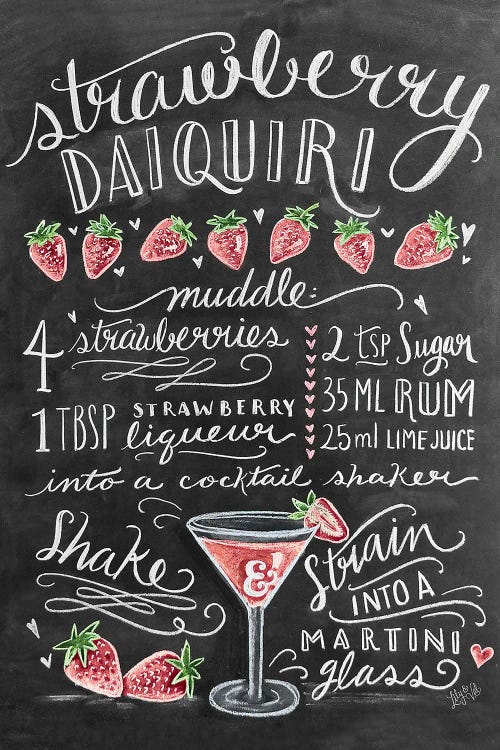 strawberry
DAIQUIRI
muddle:
4 strawberries
1 TBSP STRAWBERRY liqueur
2 tsp Sugar
35 ML RUM
25ml LIME JUICE
into a cocktail shaker
Shake
&
Strain
INTO A
MARTINI
glass
Lily & Val